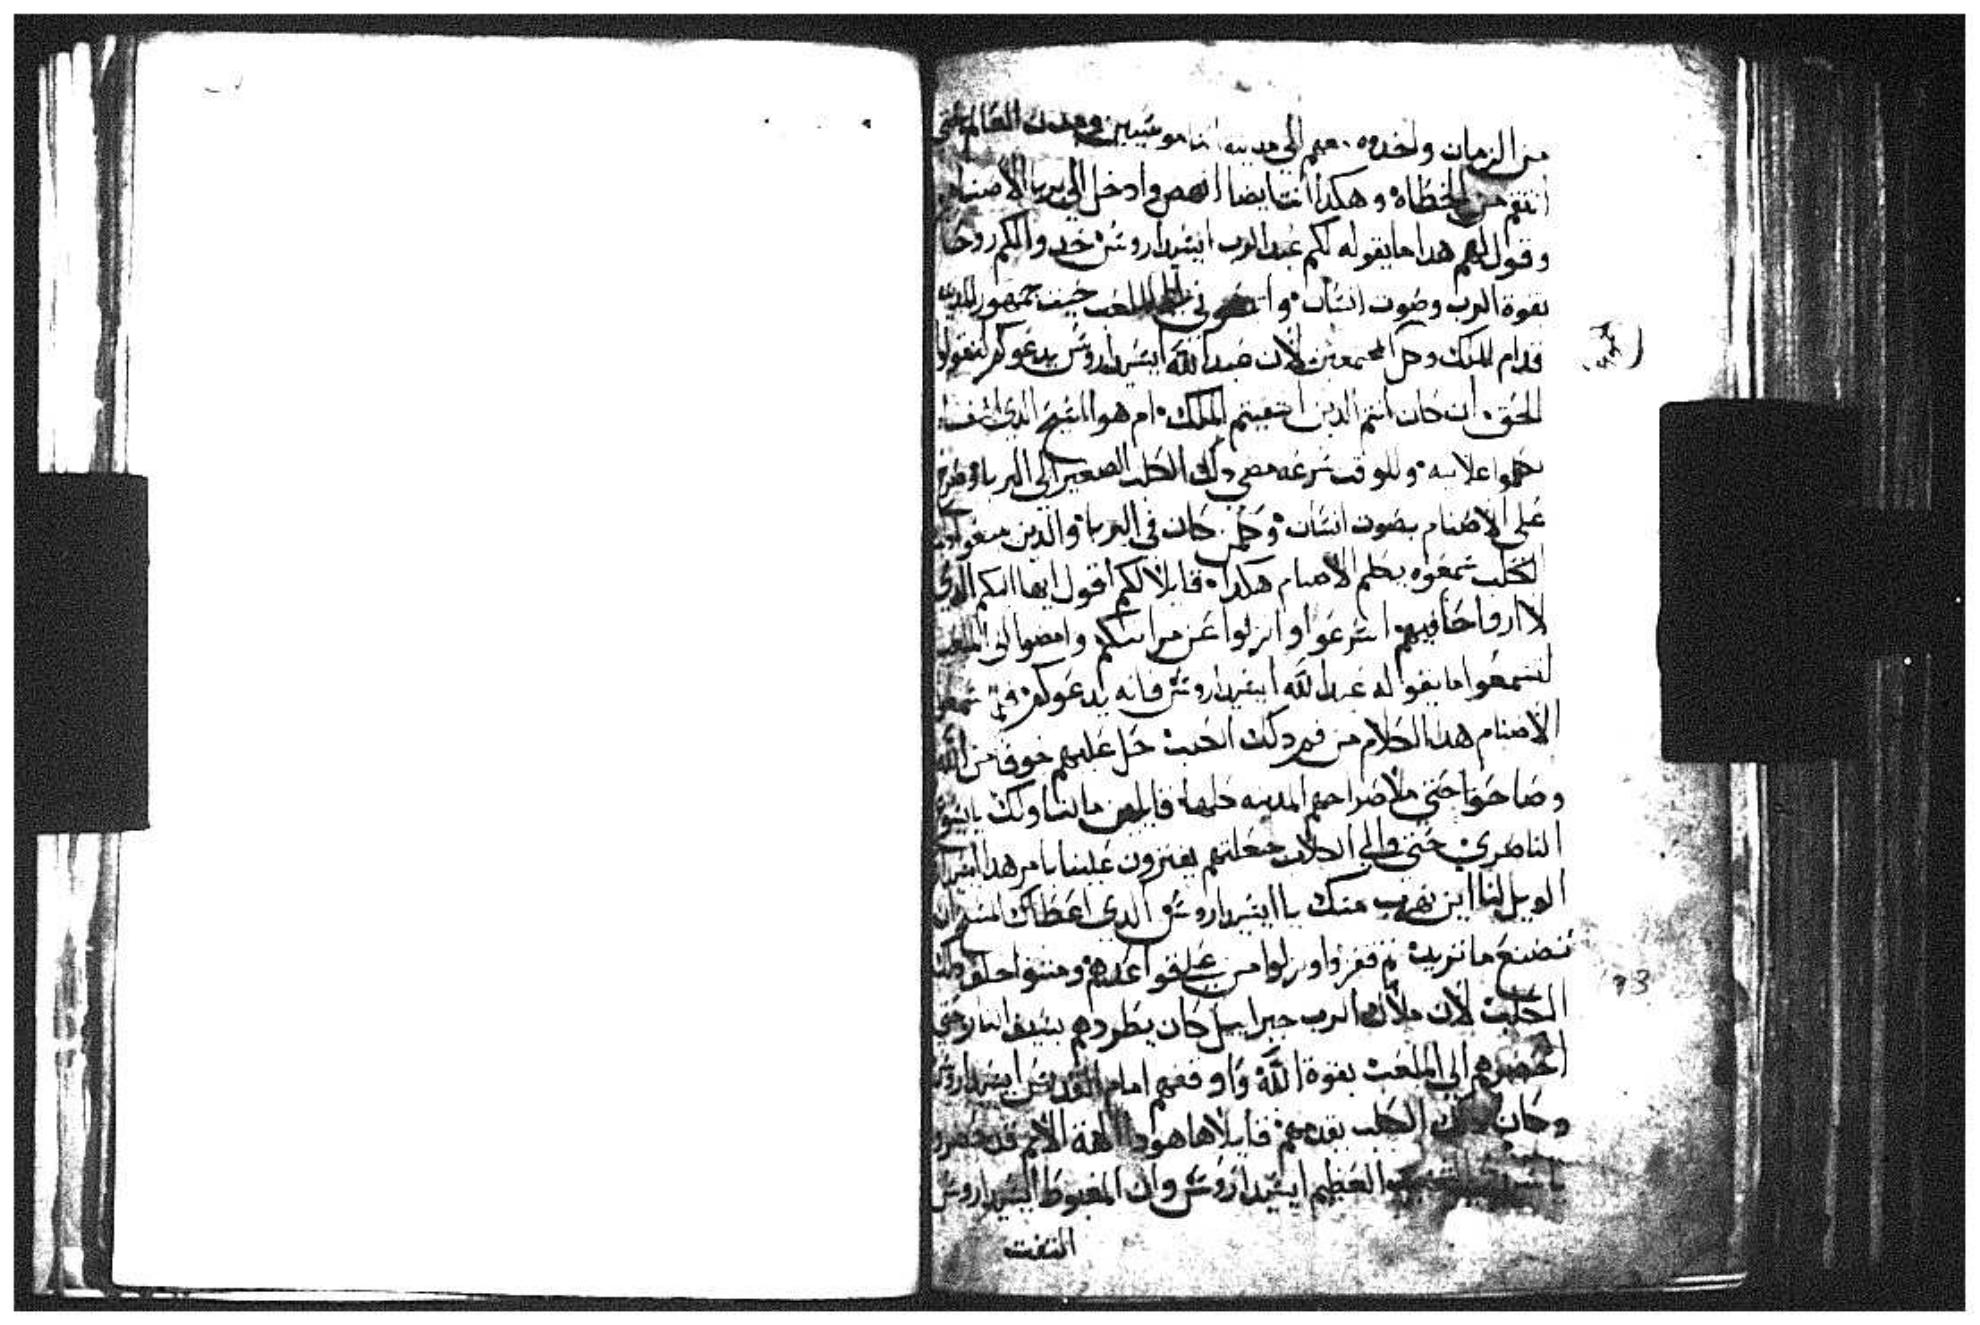 من الزمان واخدوه معهم الي مدينه
انتم من الخطاه وهكدا انت ايضا انهض وادخل الي بربا الاصنام
وقول لهم هدا ما يقوله لكم عبد الرب ايسيداروس خدوا لكم روحا
بقوة الرب وصوت انسان وا الملعب حيت جمهور المدينه
قدام الملك وكل المجتمعين لان عبد الله ايسيداروس يدعوكم لتقولوا
الحق ان كان انتم الدين الملك ام هو المسيح الدي
علانيه وللوقت بسرعه مضي دلك الكلب الصغير الي البربا وصرخ
علي الاصنام بصوت انسان وكلمن كان في البربا والدين
الكلب سمعوه يكلم الاصنام هكدا قايلا لكم اقول ايها البكم الدي
لا ارواحا فيهم اسرعوا وانزلوا عن مراتبكم وامضوا الي الملعب
لتسمعوا ما يقوله عبد الله ايسيداروس فانه يدعوكم فلما سمعوا
الاصنام هدا الكلام من فم دلك الكلب حل عليهم خوفا من الله
وصاحوا حتي ملا صراخهم المدينه كلها قايلين ما لنا ولك يايسوع
الناصري حتي والي الكلاب جعلتهم يفترون علينا بامر هدا
الويل لنا اين نهرب منك يا ايسيداروس الدي اعطاك
تصنع ما تريد تم قفزوا ونزلوا من علي قواعدهم ومشوا خلف دلك
الكلب لان ملاك الرب جبراييل كان يطردهم بسيف النار حتي
احضرهم الي الملعب بقوة الله واوقفهم امام القديس ايسيداروس
وكان دلك الكلب يقدمهم قايلا هاهودا الهة الامم قد حضروا
العظيم ايسيداروس وان المغبوط ايسيداروس
التفت
93